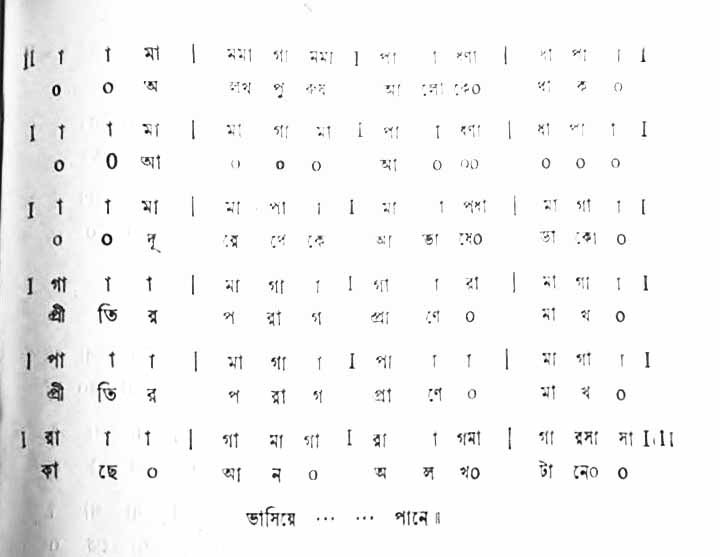 II া া মা | মমা গা মমা I পা া ণা | ধা পা া I
০ ০ অ লখ পু রুষ আ লো কে০ থা ক ০
I া া মা | মা গা মা I পা া ণা | ধা পা া I
০ ০ আ ০ ০ ০ আ ০ ০০ ০ ০ ০
I া া মা | মা পা া I মা া পধা | মা গা া I
০ ০ দূ রে থে কে আ ভা ষে০ ডা কো ০
I গা া া | মা গা া I গা া রা | মা গা া I
প্রী তি র প রা গ প্রা ণে ০ মা খ ০
I পা া া | মা গা া I পা া া | মা গা া I
প্রী তি র প রা গ প্রা ণে ০ মা খ ০
I রা া া | গা মা গা I রা া গমা | গা রসা সা I।II
কা ছে ০ আ ন ০ অ ল খ০ টা নে০ ০
ভাসিয়ে ··· ··· পানে॥